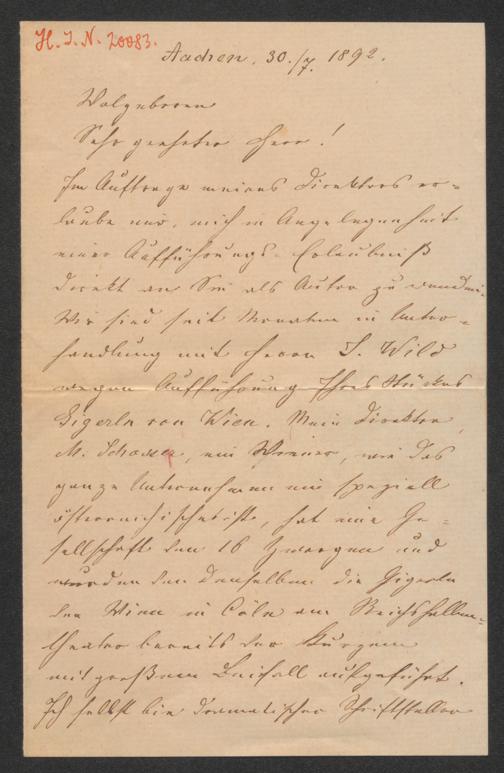 H. I. N. 20083.
Aachen, 30./7. 1892.
Wolgeboren
Sehr geehrter Herr!
Im Auftrage meines Direktors er-
laube mir, mich in Angelegenheit
einer Aufführungs-Erlaubniß
direkt an Sie als Autor zu wenden.
Wir sind seit Monaten in Unter-
handlung mit Herrn J. Wild
wegen Aufführung Ihres Stückes
Gigerln von Wien. Mein Direktor,
M. Schosser, ein Wiener, wie das
ganze Unternehmen ein speziell
österreichisches ist, hat eine Ge-
sellschaft von 16 Zwergen und
wurden von denselben die Gigerln
von Wien in Cöln am Reichshallen-
theater bereits vor Kurzem
mit großem Beifall aufgeführt.
Ich selbst bin dramatischer Schriftsteller